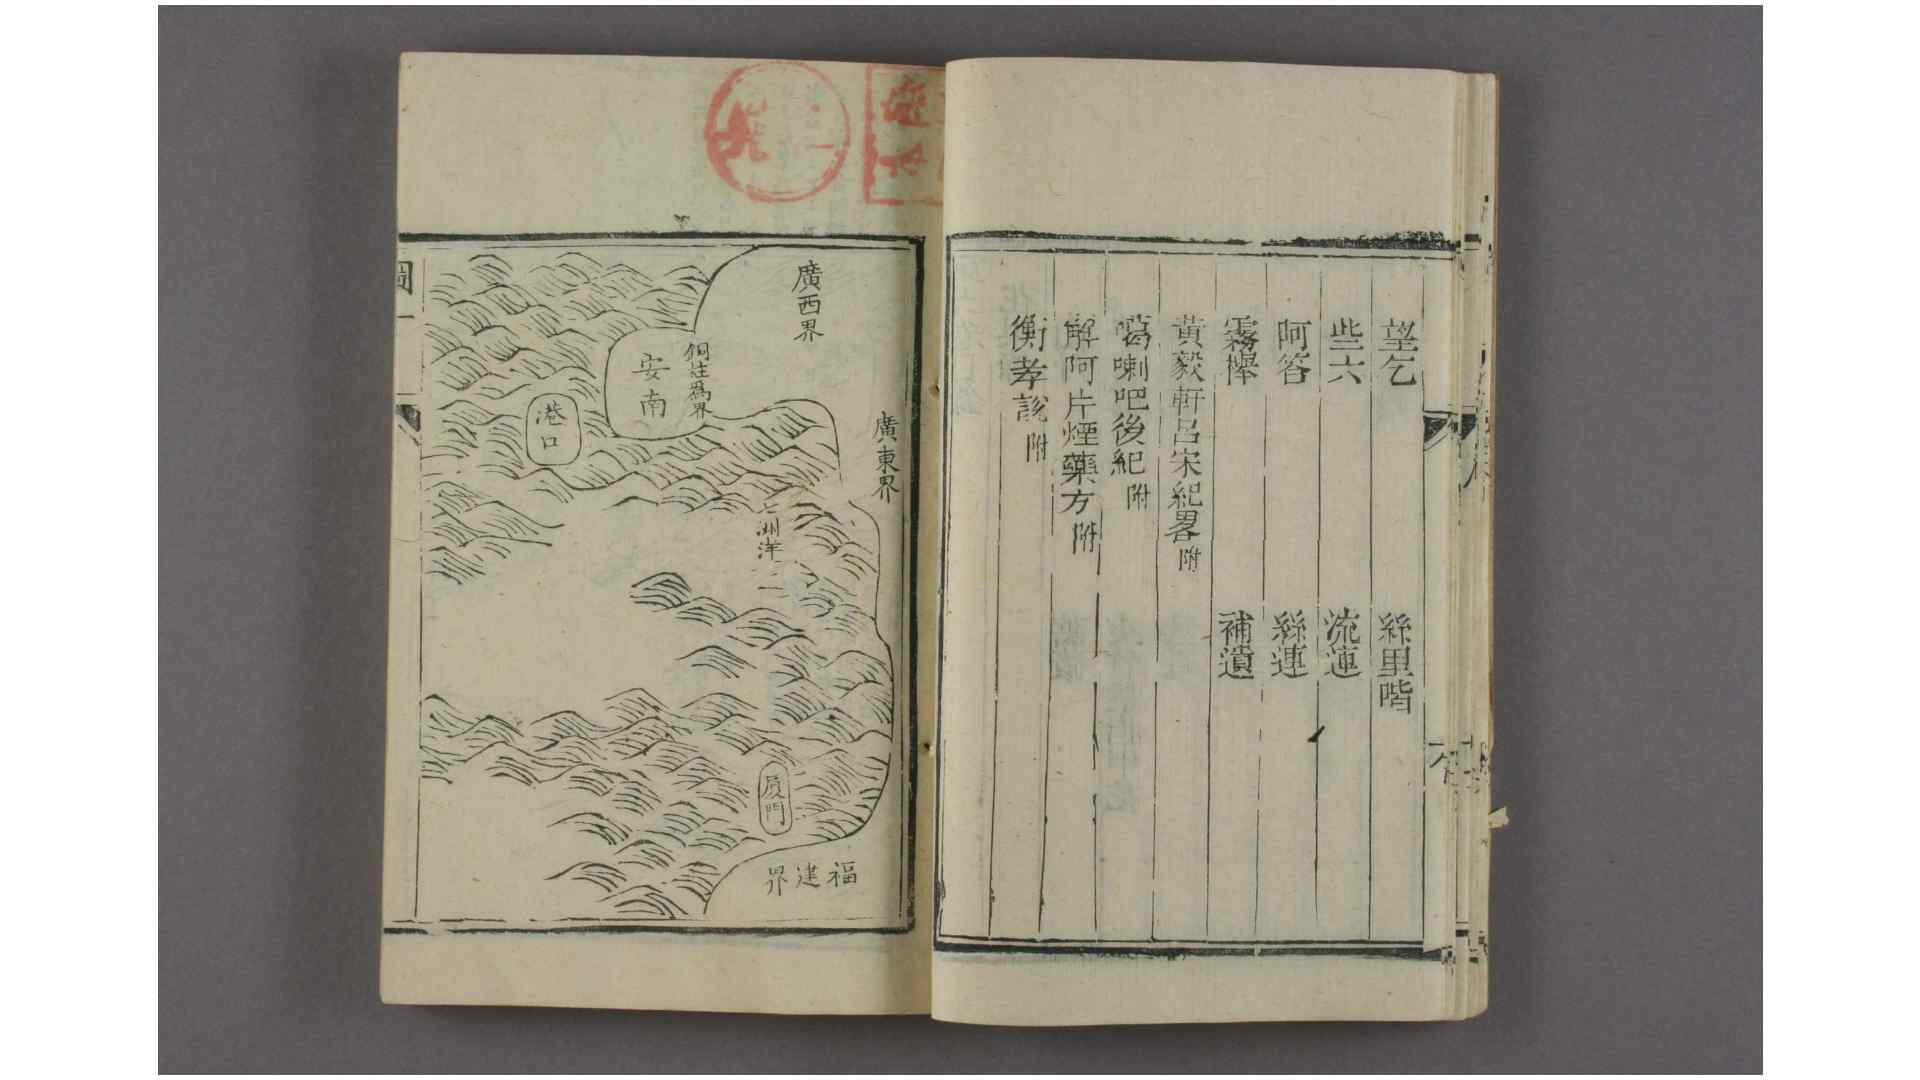 望乞
絲里階
些六
流連
阿答
絲連
霧樨
補遺
黃毅軒呂宋紀畧附
噶喇吧後紀附
解阿片煙藥方附
衡孝說附
廣西界
銅柱為界
安南
港口
廣東界
七洲洋
厦門
福建界
圖